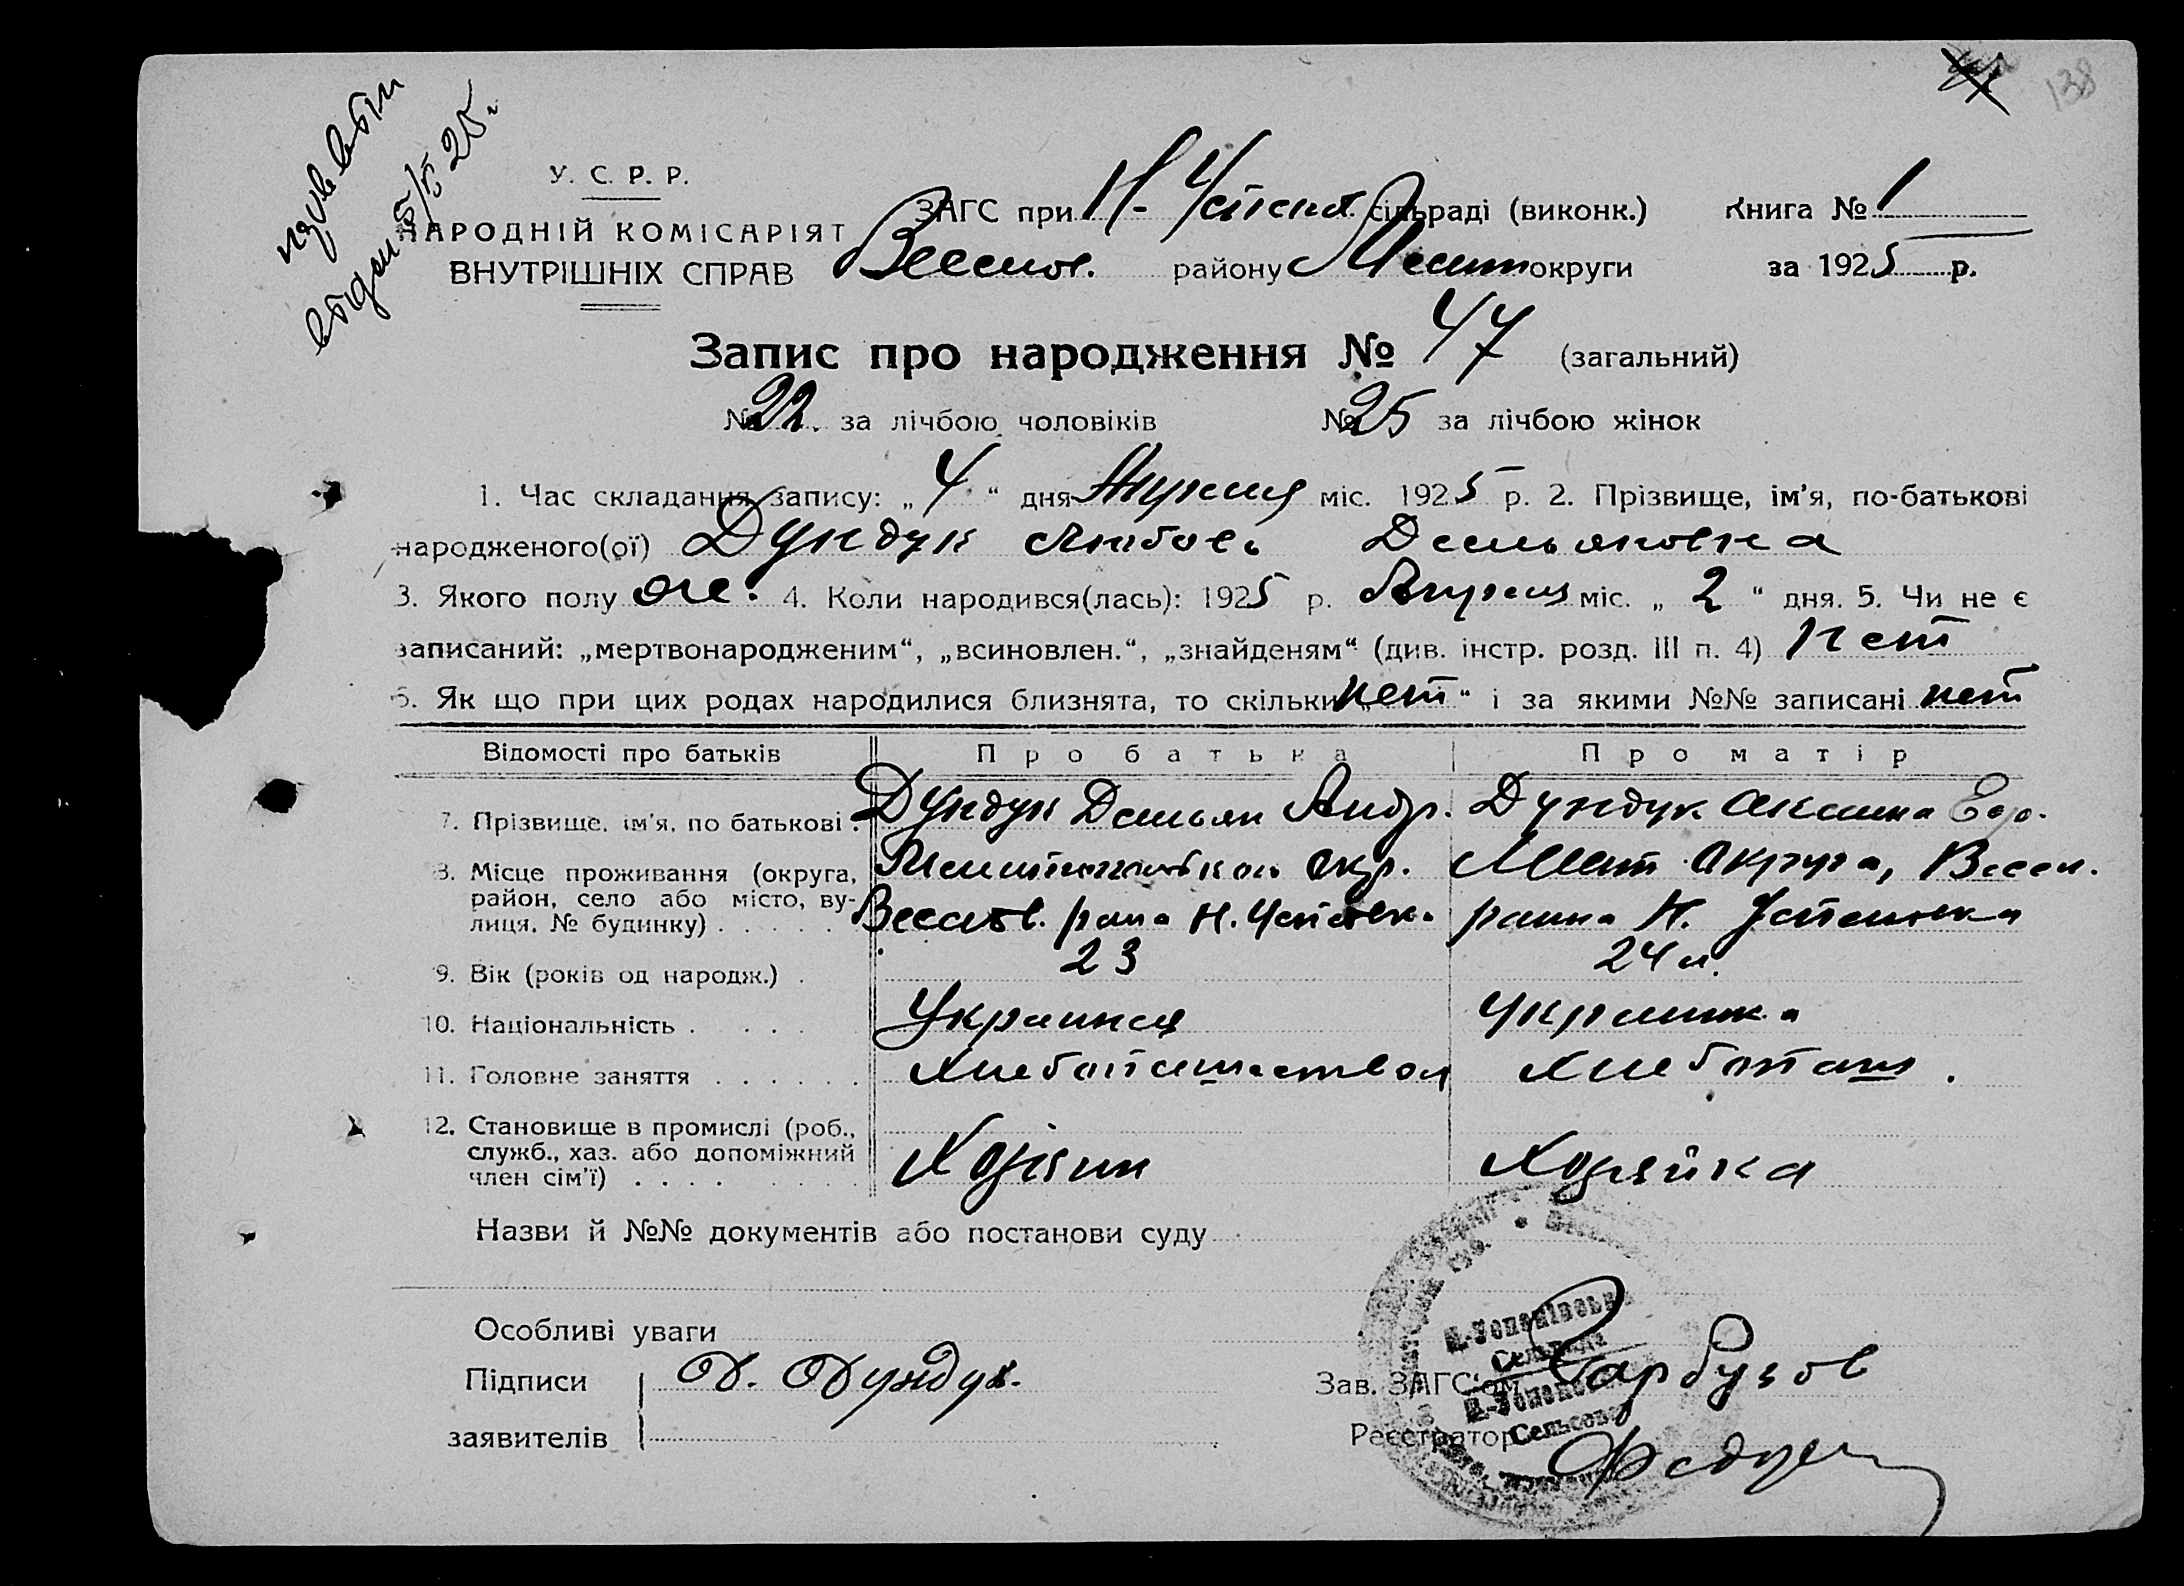 138
У. С. Р. Р.
НАРОДНІЙ КОМІСАРІЯТ
ВНУТРІШНІХ СПРАВ
ЗАГС при Н- Успен. сільраді (виконк.) Книга № 1
Весел. району Мелит округи за 1925 р.
Запис про народження № 47 (загальний)
№ 22. за лічбою чоловіків № 25 за лічбою жінок
1. Час складання запису: „4“ дня Апреля міс. 1925 р. 2. Прізвище, ім'я, по-батькові
народженого(ої) Дундук Любовь Демьяновна
3. Якого полу же. 4. Коли народився(лась): 1925 р. Апреля міс. „2“ дня. 5. Чи не є
записаний: „мертвонародженим“, „всиновлен.“, „знайденям“ (див. інстр. розд. III п. 4) Нет
6. Як що при цих родах народилися близнята, то скільки „нет“ і за якими №№ записані нет
Відомості про батьків Про батька Про матір
7. Прізвище, ім'я, по батькові . Дундук Демьян Андр. Дундук Аксинья
8. Місце проживання (округа, Мелитопольской Окр. Мелит Округа, Весел.
район, село або місто, ву- Веселов. райо Н. Успеновк. района Н. Успеновка
лиця, № будинку) . . . . .
9. Вік (років од народж.) . 23 24 л.
10. Національність . . . . Украинец Украинка
11. Головне заняття . . . . . . Хлебопашеством Хлебопаш.
12. Становище в промислі (роб.,
служб., хаз. або допоміжний Хозяин Хозяйка
член сім'ї) . . . .
Назви й №№ документів або постанови суду
Особливі уваги
Підписи Д. Дундук.
заявителів
Зав. ЗАГС'ом Гарбузов
Реєстратор
Н.-Успенівська
Сельрада
Н.-Успеновск
Сельсовет